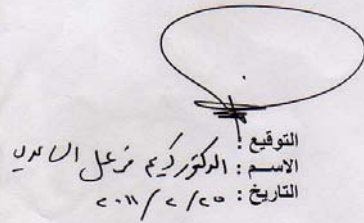 التوقيع :
الاسم : الدكتور كريم مزعل الساعدي
التاريخ : ٢٠١١/٢/٢٥